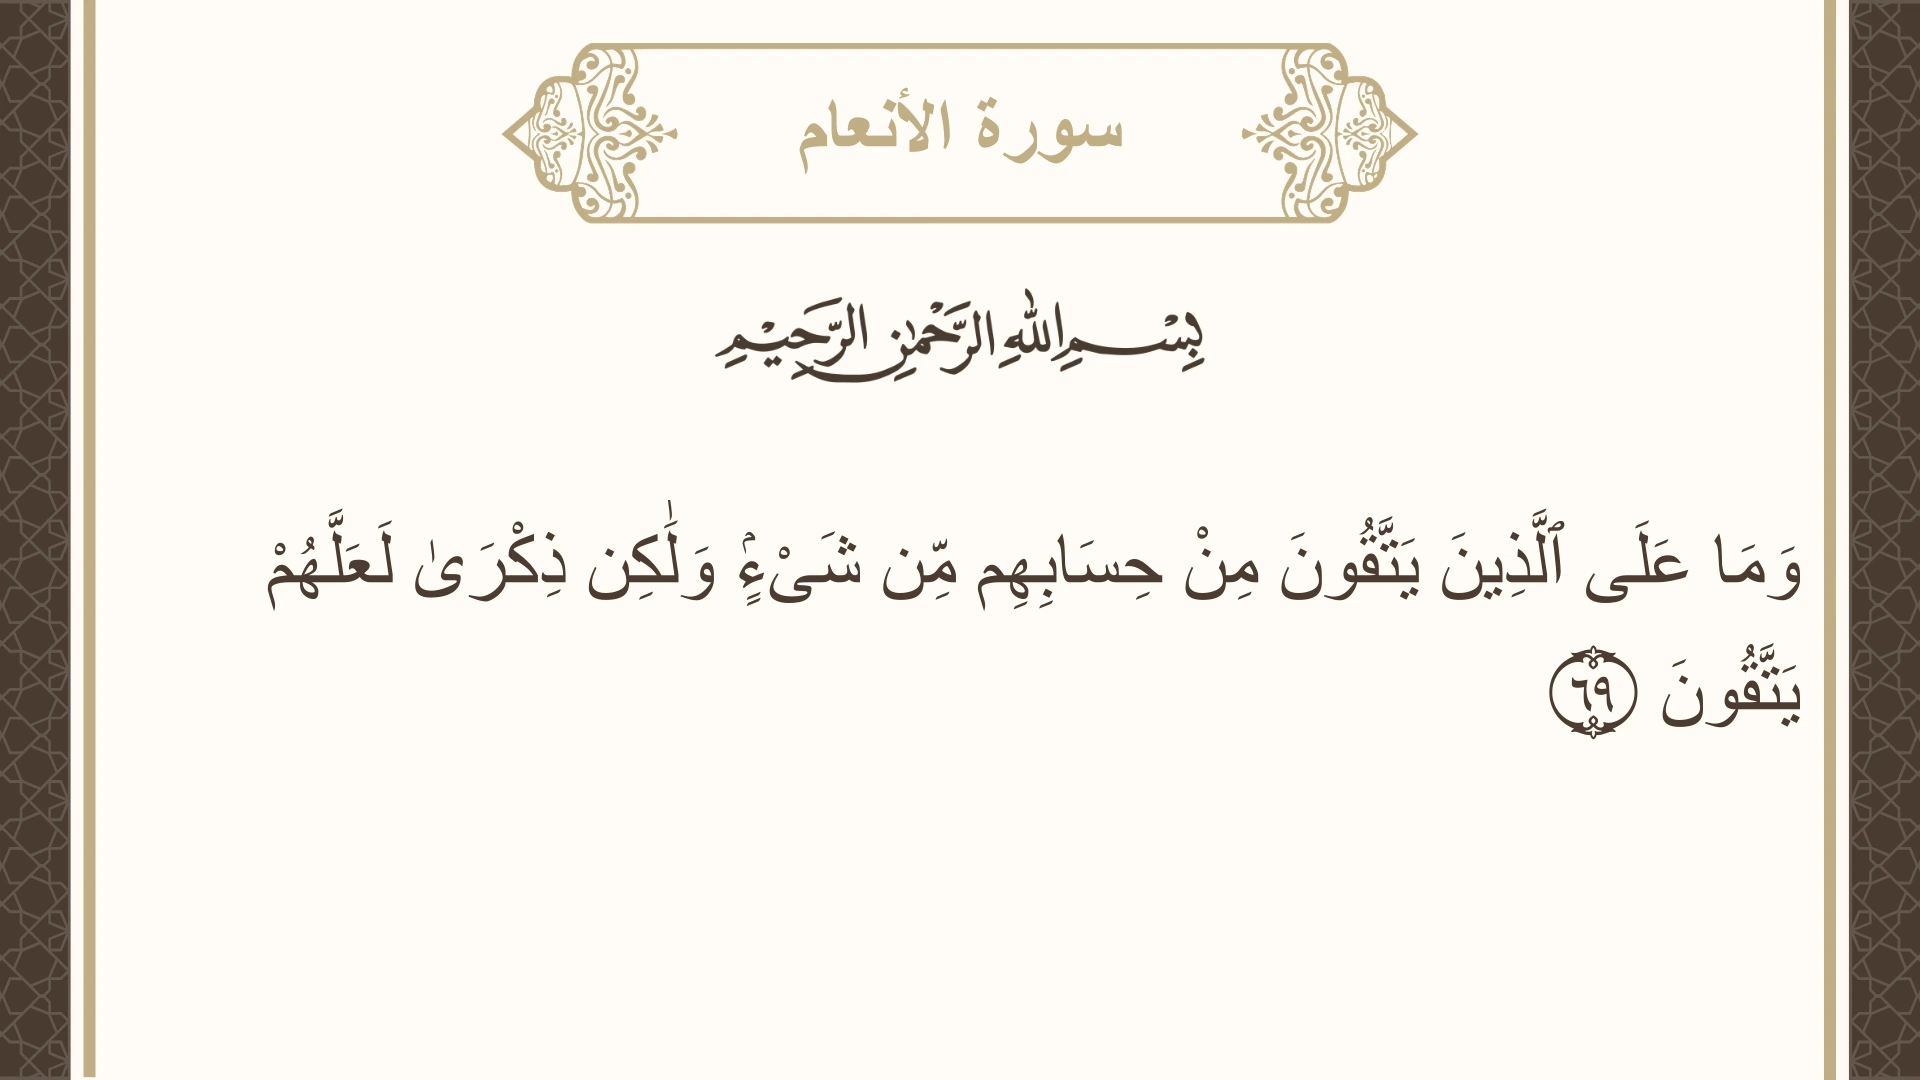 سورة الأنعام
بِسْمِ اللهِ الرَّحْمٰنِ الرَّحِيْمِ
وَمَا عَلَى ٱلَّذِينَ يَتَّقُونَ مِنْ حِسَابِهِم مِّن شَىْءٍۢ وَلَٰكِن ذِكْرَىٰ لَعَلَّهُمْ
يَتَّقُونَ ٦٩